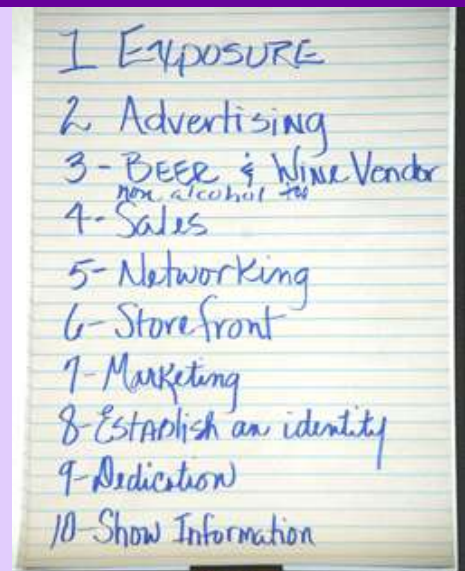 1 EXPOSURE
2 Advertising
3- BEER & WINE Vendor
non alcohol too
4- Sales
5- Networking
6- Storefront
7- Marketing
8- Establish an identity
9- Dedication
10- Show Information